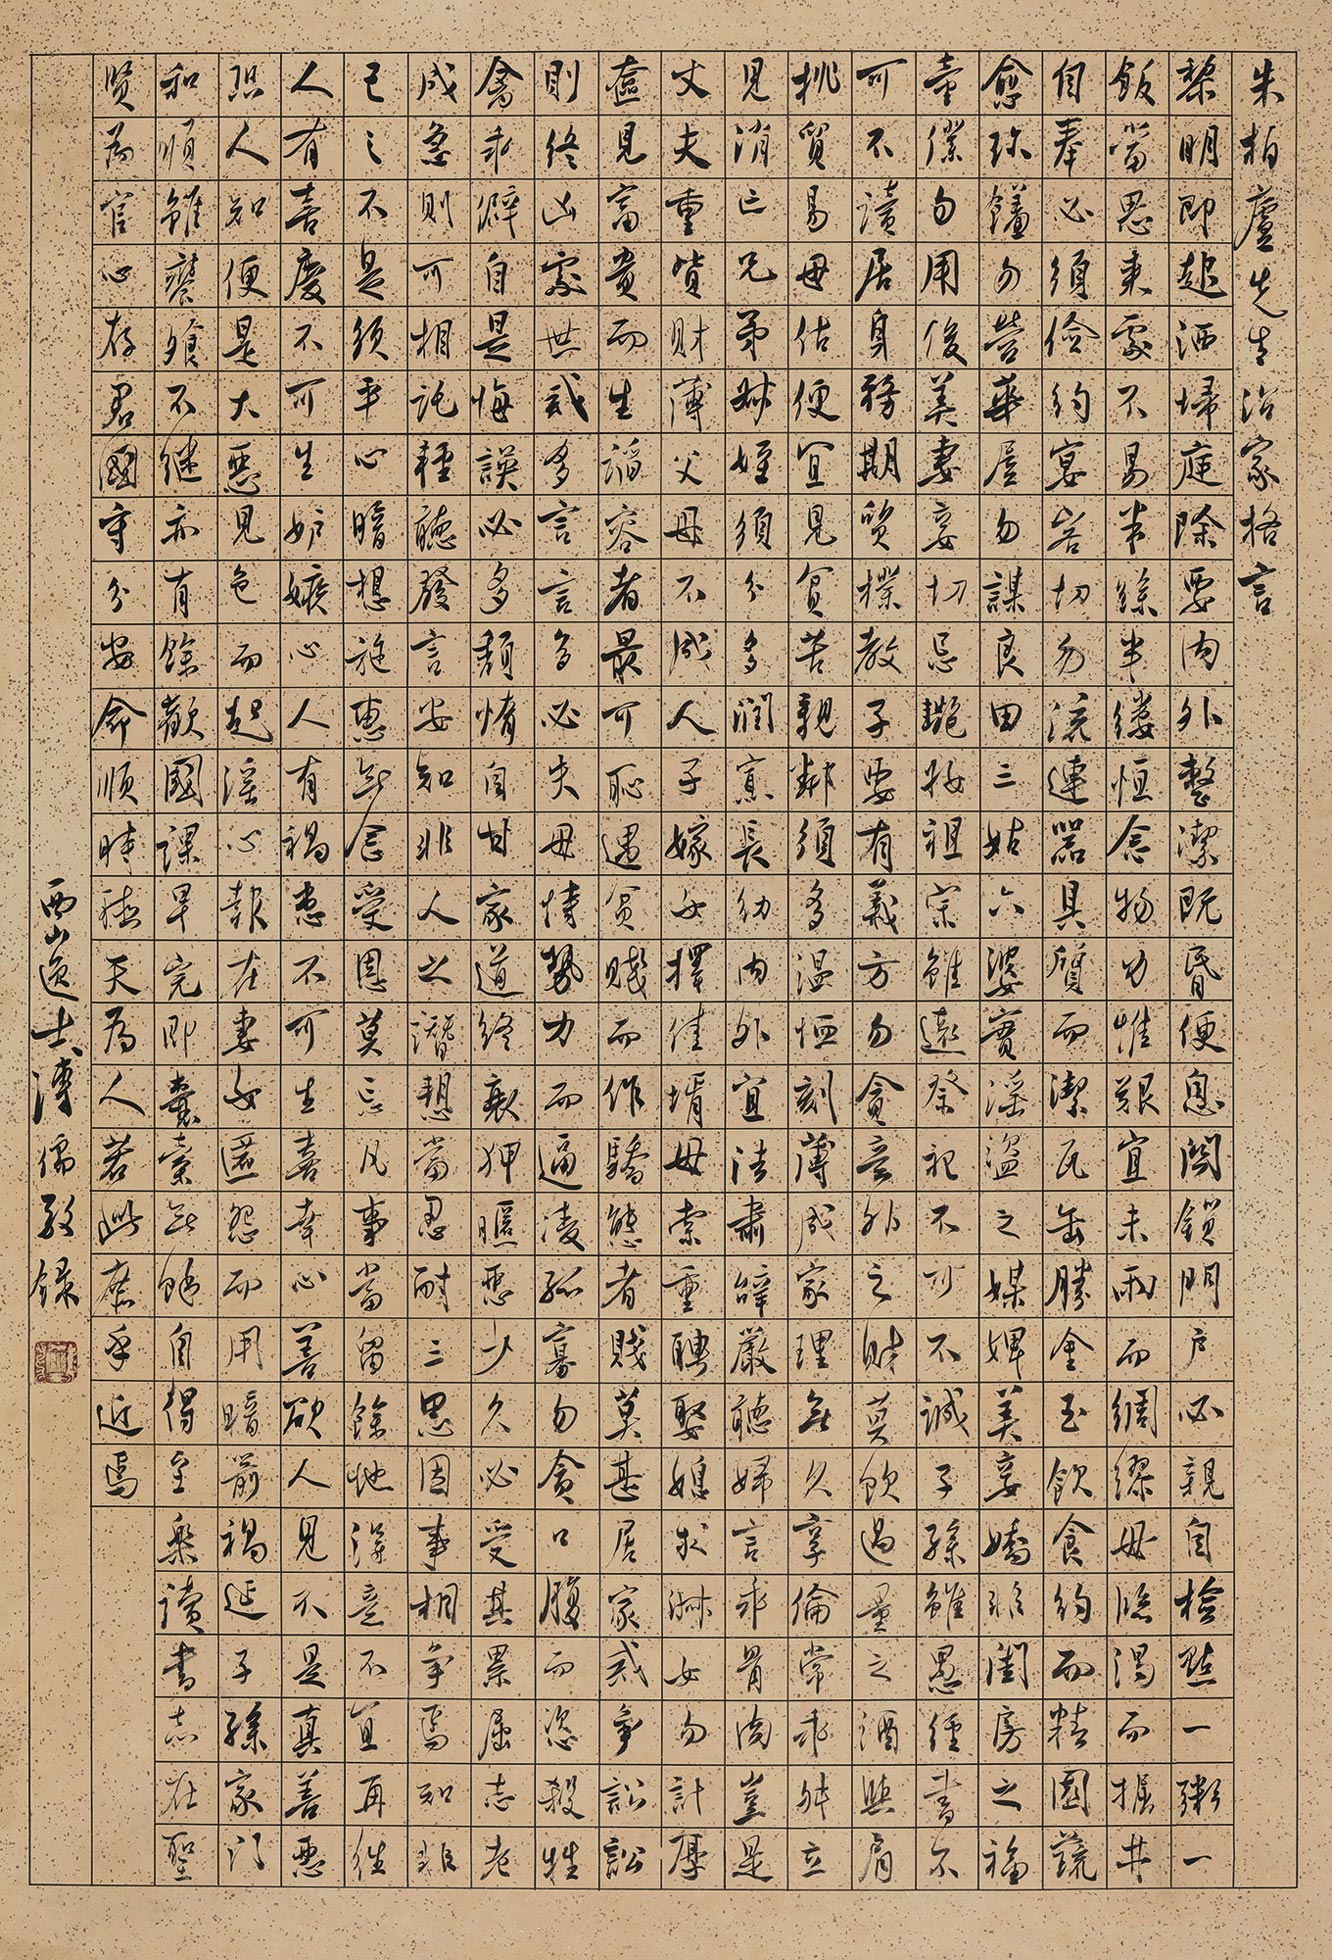 朱柏廬先生治家格言
黎明即起洒掃庭除要内外整潔既昏便息関鎖門户必親自檢點一粥一
飯當思來處不易半絲半縷恒念物力惟艱宜未雨而綢繆毋臨渴而掘井
自奉必須儉約宴客切勿流連器具質而潔瓦缶勝金玉飲食約而精園蔬
愈珍饈勿營華屋勿謀良田三姑六婆實淫盜之媒婢美妾嬌非閨房之福
童僕勿用俊美妻妾切忌艷妝祖宗雖遠祭祀不可不誠子孫雖愚經書不
可不讀居身務期質樸教子要有義方勿貪意外之財莫飲過量之酒與肩
挑貿易毋佔便宜見貧苦親鄰須多温恤刻薄成家理無久享倫常乖舛立
見消亡兄弟叔姪須分多潤寡長幼内外宜法肅辭嚴聽婦言乖骨肉豈是
丈夫重貲財薄父母不成人子嫁女擇佳壻毋索重聘娶媳求淑女勿計厚
奩見富貴而生諂容者最可恥遇貧賤而作驕態者賤莫甚居家戒爭訟訟
則終凶處世戒多言言多必失毋恃勢力而逼凌孤寡勿貪口腹而恣殺牲
禽乖僻自是悔誤必多頹惰自甘家道終衰狎暱惡少久必受其累屈志老
成急則可相託輕聽發言安知非人之譖愬當忍耐三思因事相爭焉知非
己之不是須平心暗想施惠無念受恩莫忘凡事當留餘地得意不宜再往
人有喜慶不可生妒嫉心人有禍患不可生喜幸心善欲人見不是真善惡
恐人知便是大惡見色而起淫心報在妻女匿怨而用暗箭禍延子孫家門
和順雖饔飧不繼亦有餘歡國課早完即囊橐無餘自得至樂讀書志在聖
賢為官心存君國守分安命順時聽天為人若此庶乎近焉
西山逸士溥儒敬録